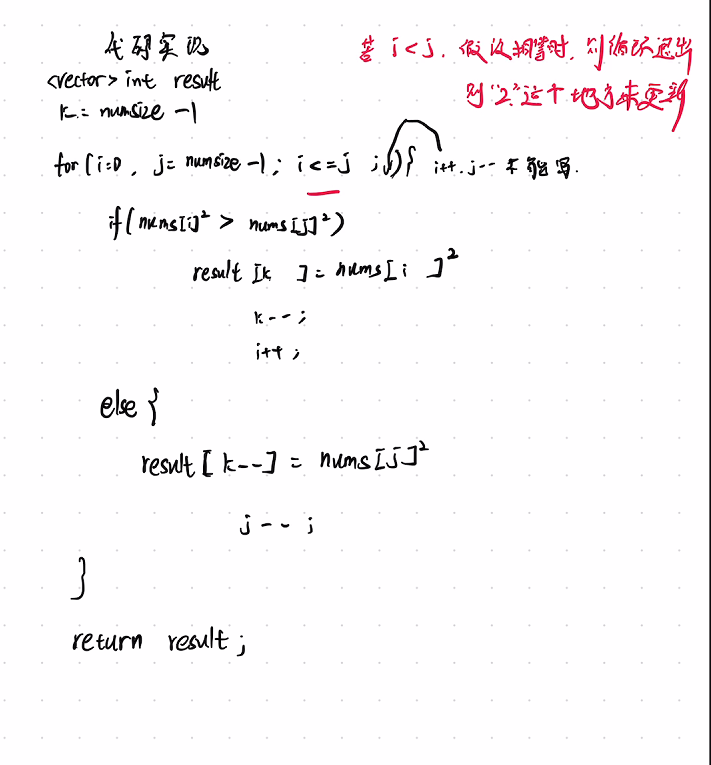 代码实现
若 i<j. 假设相等时, 则循环退出
则“2”这个地方未更新
<vector> int result
k = numsize -1
for (i=0, j= numsize -1; i<=j ; ) { i++. j-- 不能写.
if( nums[i]² > nums[j]²)
result [k ] = nums[ i ]²
k--;
i++;
else {
result [ k--] = nums[j]²
j--;
}
return result;